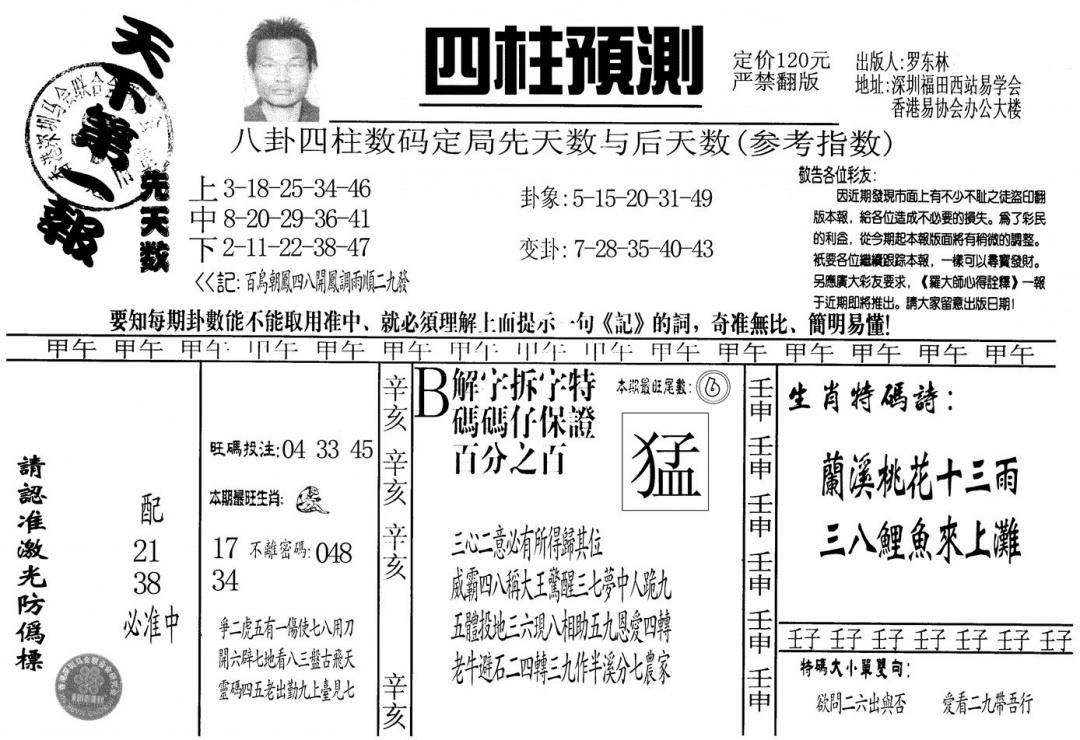 天下第一報
四柱預測
定价120元
严禁翻版
出版人:罗东林
地址:深圳福田西站易学会
香港易协会办公大楼
八卦四柱数码定局先天数与后天数(参考指数)
先天数
上 3-18-25-34-46
中 8-20-29-36-41
下 2-11-22-38-47
卦象:5-15-20-31-49
变卦:7-28-35-40-43
<<記:百鳥朝鳳四八開鳳調雨順二九發
敬告各位彩友:
因近期發現市面上有不少不耻之徒盜印翻
版本報,給各位造成不必要的損失。爲了彩民
的利益,從今期起本報版面將有稍微的調整。
衹要各位繼續跟踪本報,一樣可以尋寶發財。
另應廣大彩友要求,《羅大師心得詮釋》一報
于近期即將推出。請大家留意出版日期!
要知每期卦數能不能取用准中、就必須理解上面提示一句《記》的詞,奇准無比、簡明易懂!
甲午 甲午 甲午 甲午 甲午 甲午 甲午 甲午 甲午 甲午 甲午 甲午 甲午 甲午 甲午
請認准激光防僞標
配
21
38
必准中
旺碼投注:04 33 45
本期最旺生肖:
17 不離密碼:048
34
爭二虎五有一傷使七八用刀
開六辟七地看八三盤古飛天
靈碼四五老出勤九上臺見七
辛亥
辛亥
辛亥
辛亥
B
解字拆字特
碼碼仔保證
百分之百
本期最旺尾數:6
猛
三心二意必有所得歸其位
威霸四八稱大王驚醒三七夢中人跪九
五體投地三六現八相助五九恩愛四轉
老牛避石二四轉三九作半溪分七農家
壬申
壬申
壬申
壬申
壬申
壬申
生肖特碼詩:
蘭溪桃花十三雨
三八鯉魚來上灘
壬子 壬子 壬子 壬子 壬子 壬子 壬子
特碼大小單雙句:
欲問二六出與否 愛看二九帶吾行